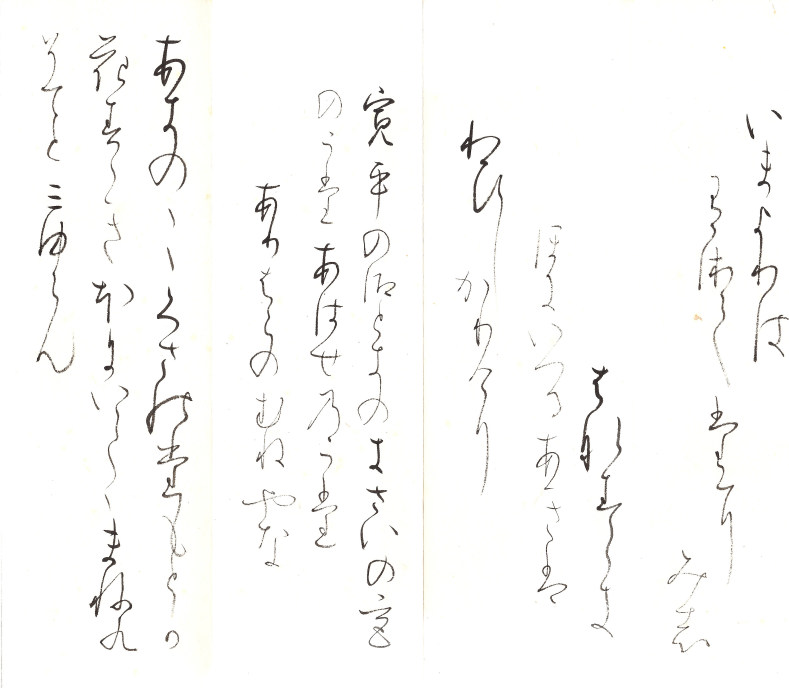 いまよりは
うゑてたに
みし
はなすゝき
ほにいつるあきは
わひしかりけり
寛平の御ときのきさいの宮
のうたあはせのうた
ありはらのむねやな
あきのゝくさのたもとか
花すゝきほにいてゝまねく
そてとみゆらん